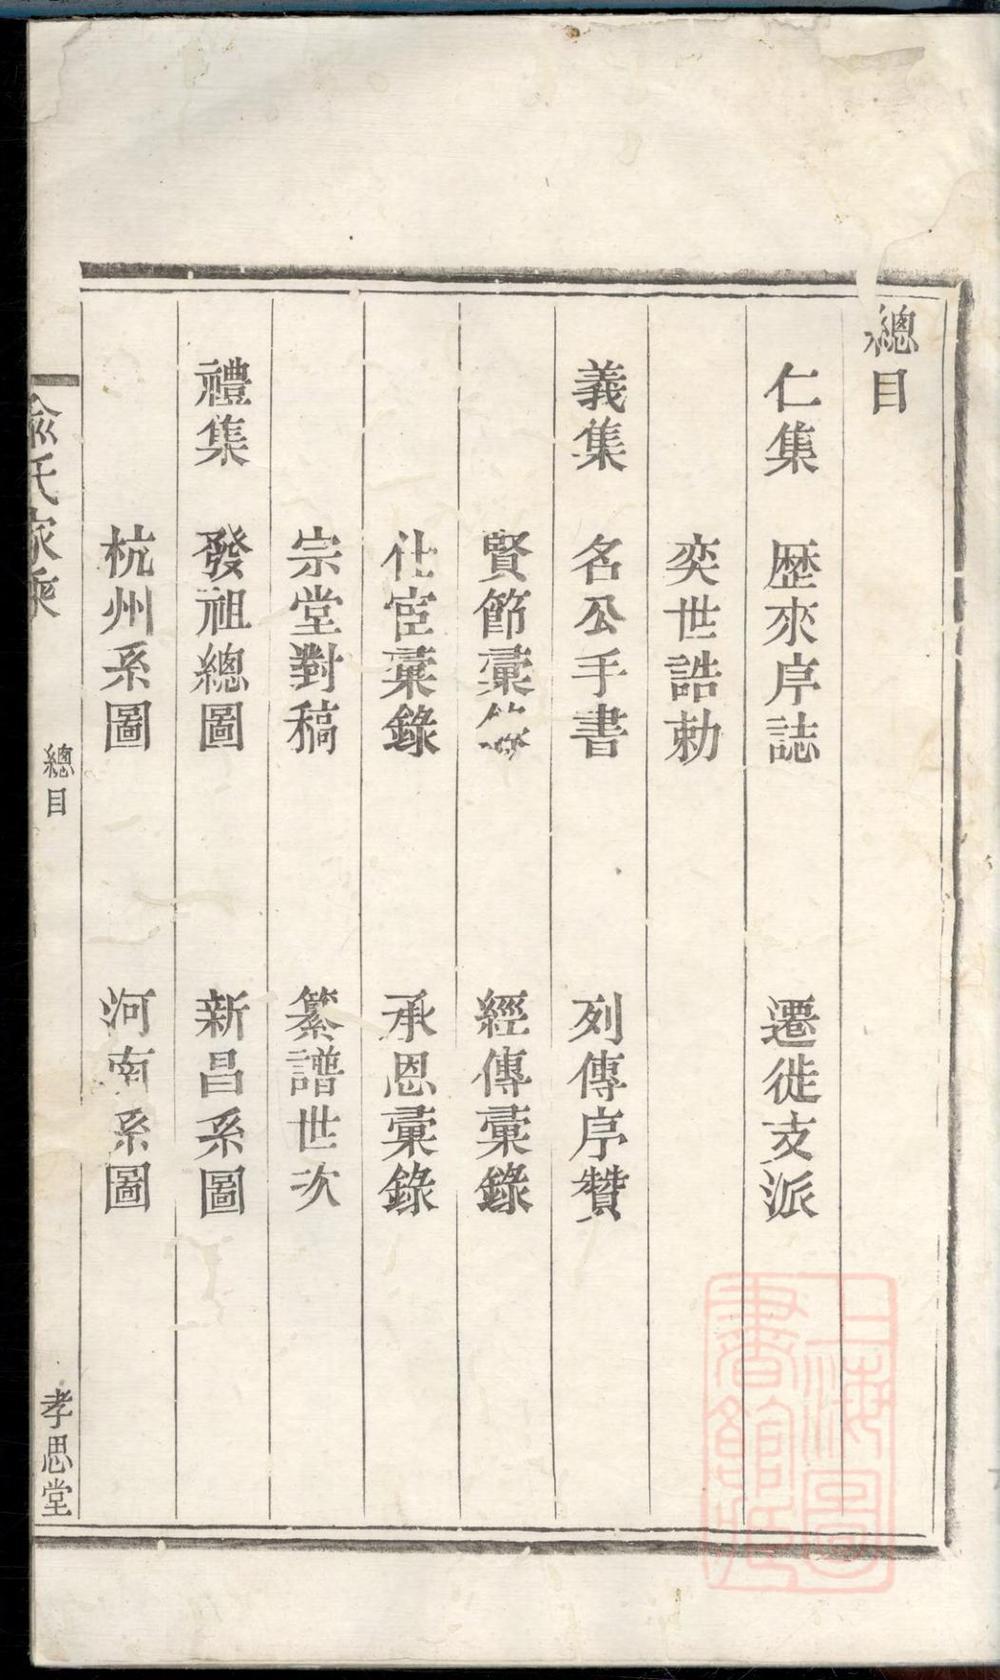 總目
仁集 歷來序誌 遷徙支派
奕世誥勅
義集 名公手書 列傳序贊
賢節彙 經傳彙錄
仕宦彙錄 承恩彙錄
宗堂對稿 纂譜世次
禮集 發祖總圖 新昌系圖
杭州系圖 河南系圖
俞氏家乘 總目 孝思堂
上海圖書館藏